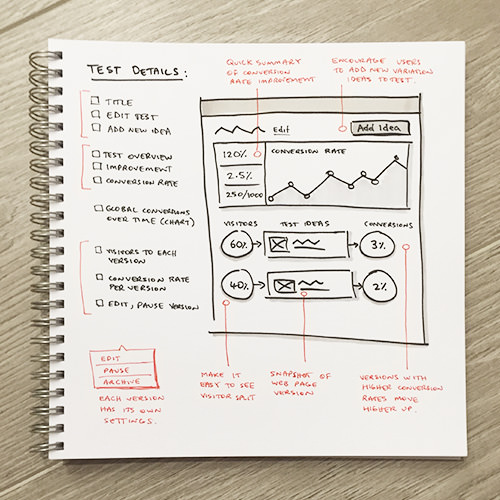 TEST DETAILS:
TITLE
EDIT TEST
ADD NEW IDEA
TEST OVERVIEW
IMPROVEMENT
CONVERSION RATE
GLOBAL CONVERSIONS
OVER TIME (CHART)
VISITORS TO EACH
VERSION
CONVERSION RATE
PER VERSION
EDIT, PAUSE VERSION
EDIT
PAUSE
ARCHIVE
EACH VERSION
HAS ITS OWN
SETTINGS.
QUICK SUMMARY
OF CONVERSION
RATE IMPROVEMENT
ENCOURAGE USERS
TO ADD NEW VARIATION
IDEAS TO TEST.
Edit
Add Idea
120%
2.5%
250/1000
CONVERSION RATE
VISITORS
TEST IDEAS
CONVERSIONS
60%
3%
40%
2%
MAKE IT
EASY TO SEE
VISITOR SPLIT
SNAPSHOT OF
WEB PAGE
VERSION
VERSIONS WITH
HIGHER CONVERSION
RATES MOVE
HIGHER UP.